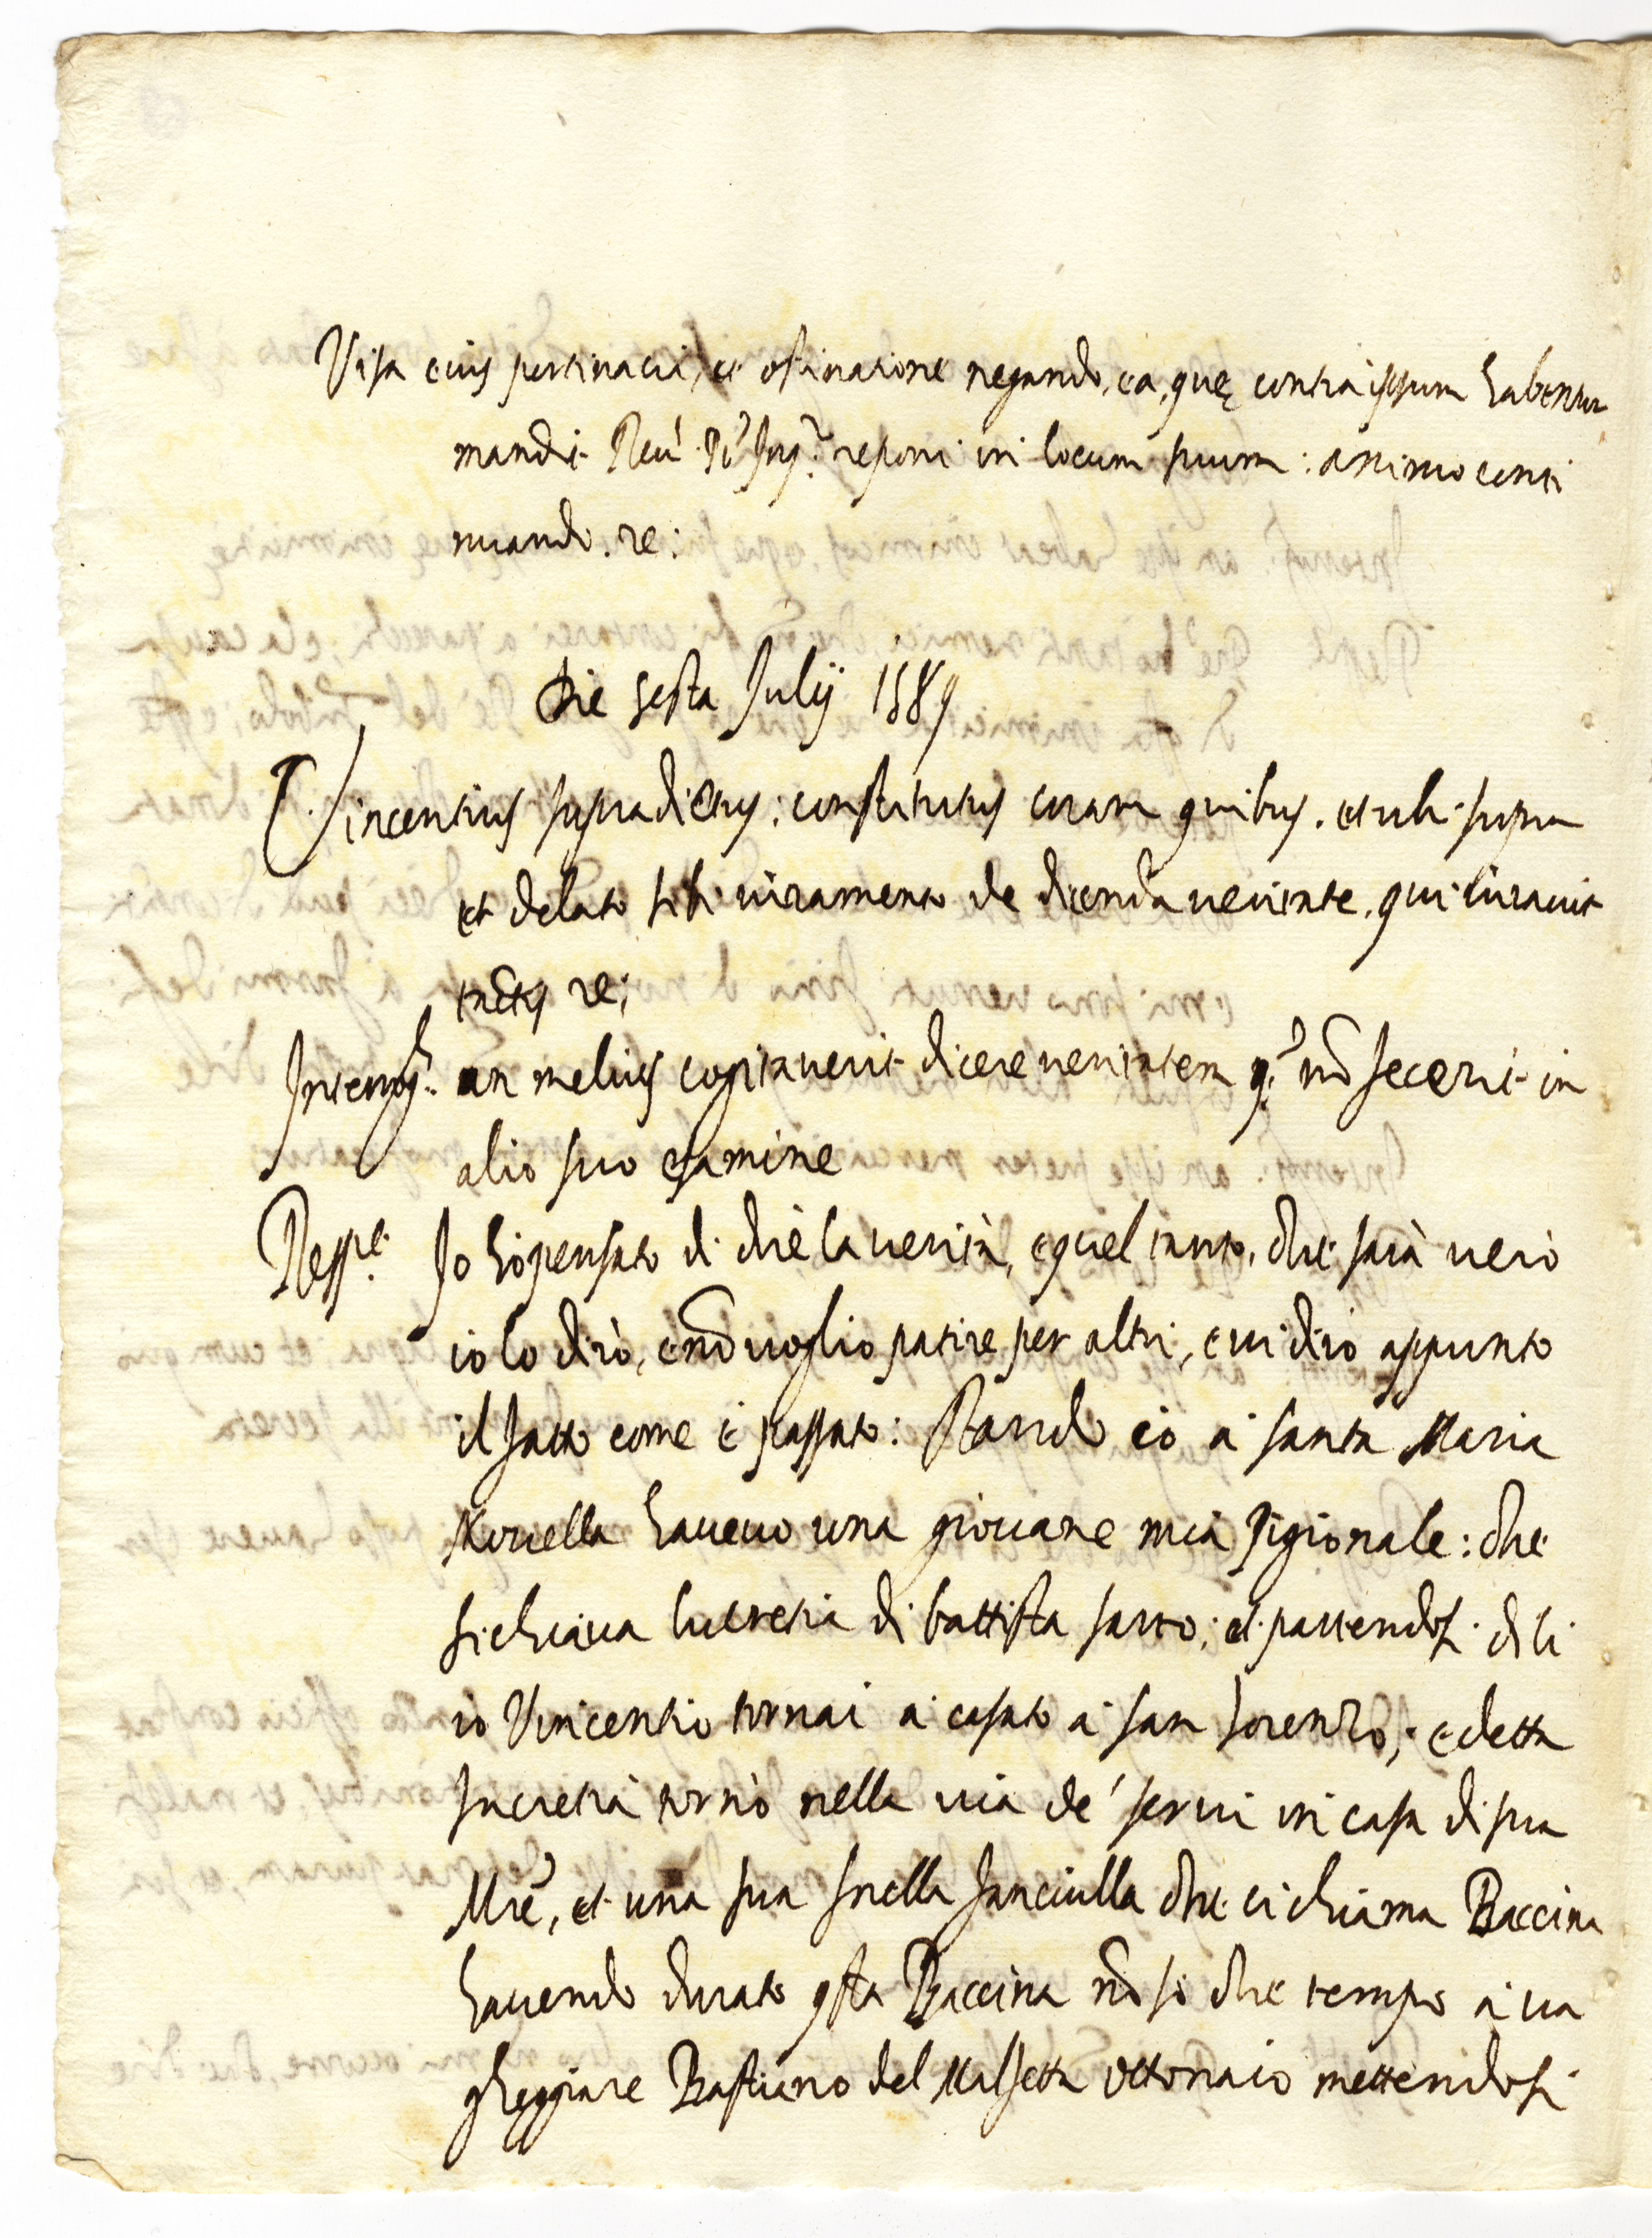 Visa eius pertinacia, et ostinatione negando, ea, quę contra ipsum habentur
mandt Reu. P. Inq.r reponi in locum suum: animo conti
nuando. rē:
Die sesta Julij 1589
Vincentius supradictus: constitutus coram quibus. et ubi supra
et delato sibi iuramento de dicenda veritate, qui iuravit
tactis rē;
Interrog. an melius cogitaverit dicere veritatem q. nō fecerit in
alio suo esamine
Resp.t Io hò pensato di dirè la verità, e quel tanto, che sarà vero
io lo dirò, e nō voglio patire per altri, e vi dirò appunto
il fatto come è passato: Stando io à santa Maria
Novella havevo una giovane mia pigionale: che
si chiava lucretia di battista sarto; et partendosi di li
io Vincentio tornai à casato à san lorenzo, e detta
lucretia tornò nella via de' servi in casa di sua
Mrē, et una sua srella fanciulla che ci chiama Baccina
havendo durato qsta Baccina nō sò che tempo à va
gheggiare Bastiano del Malfetta ottonaio mettendosi